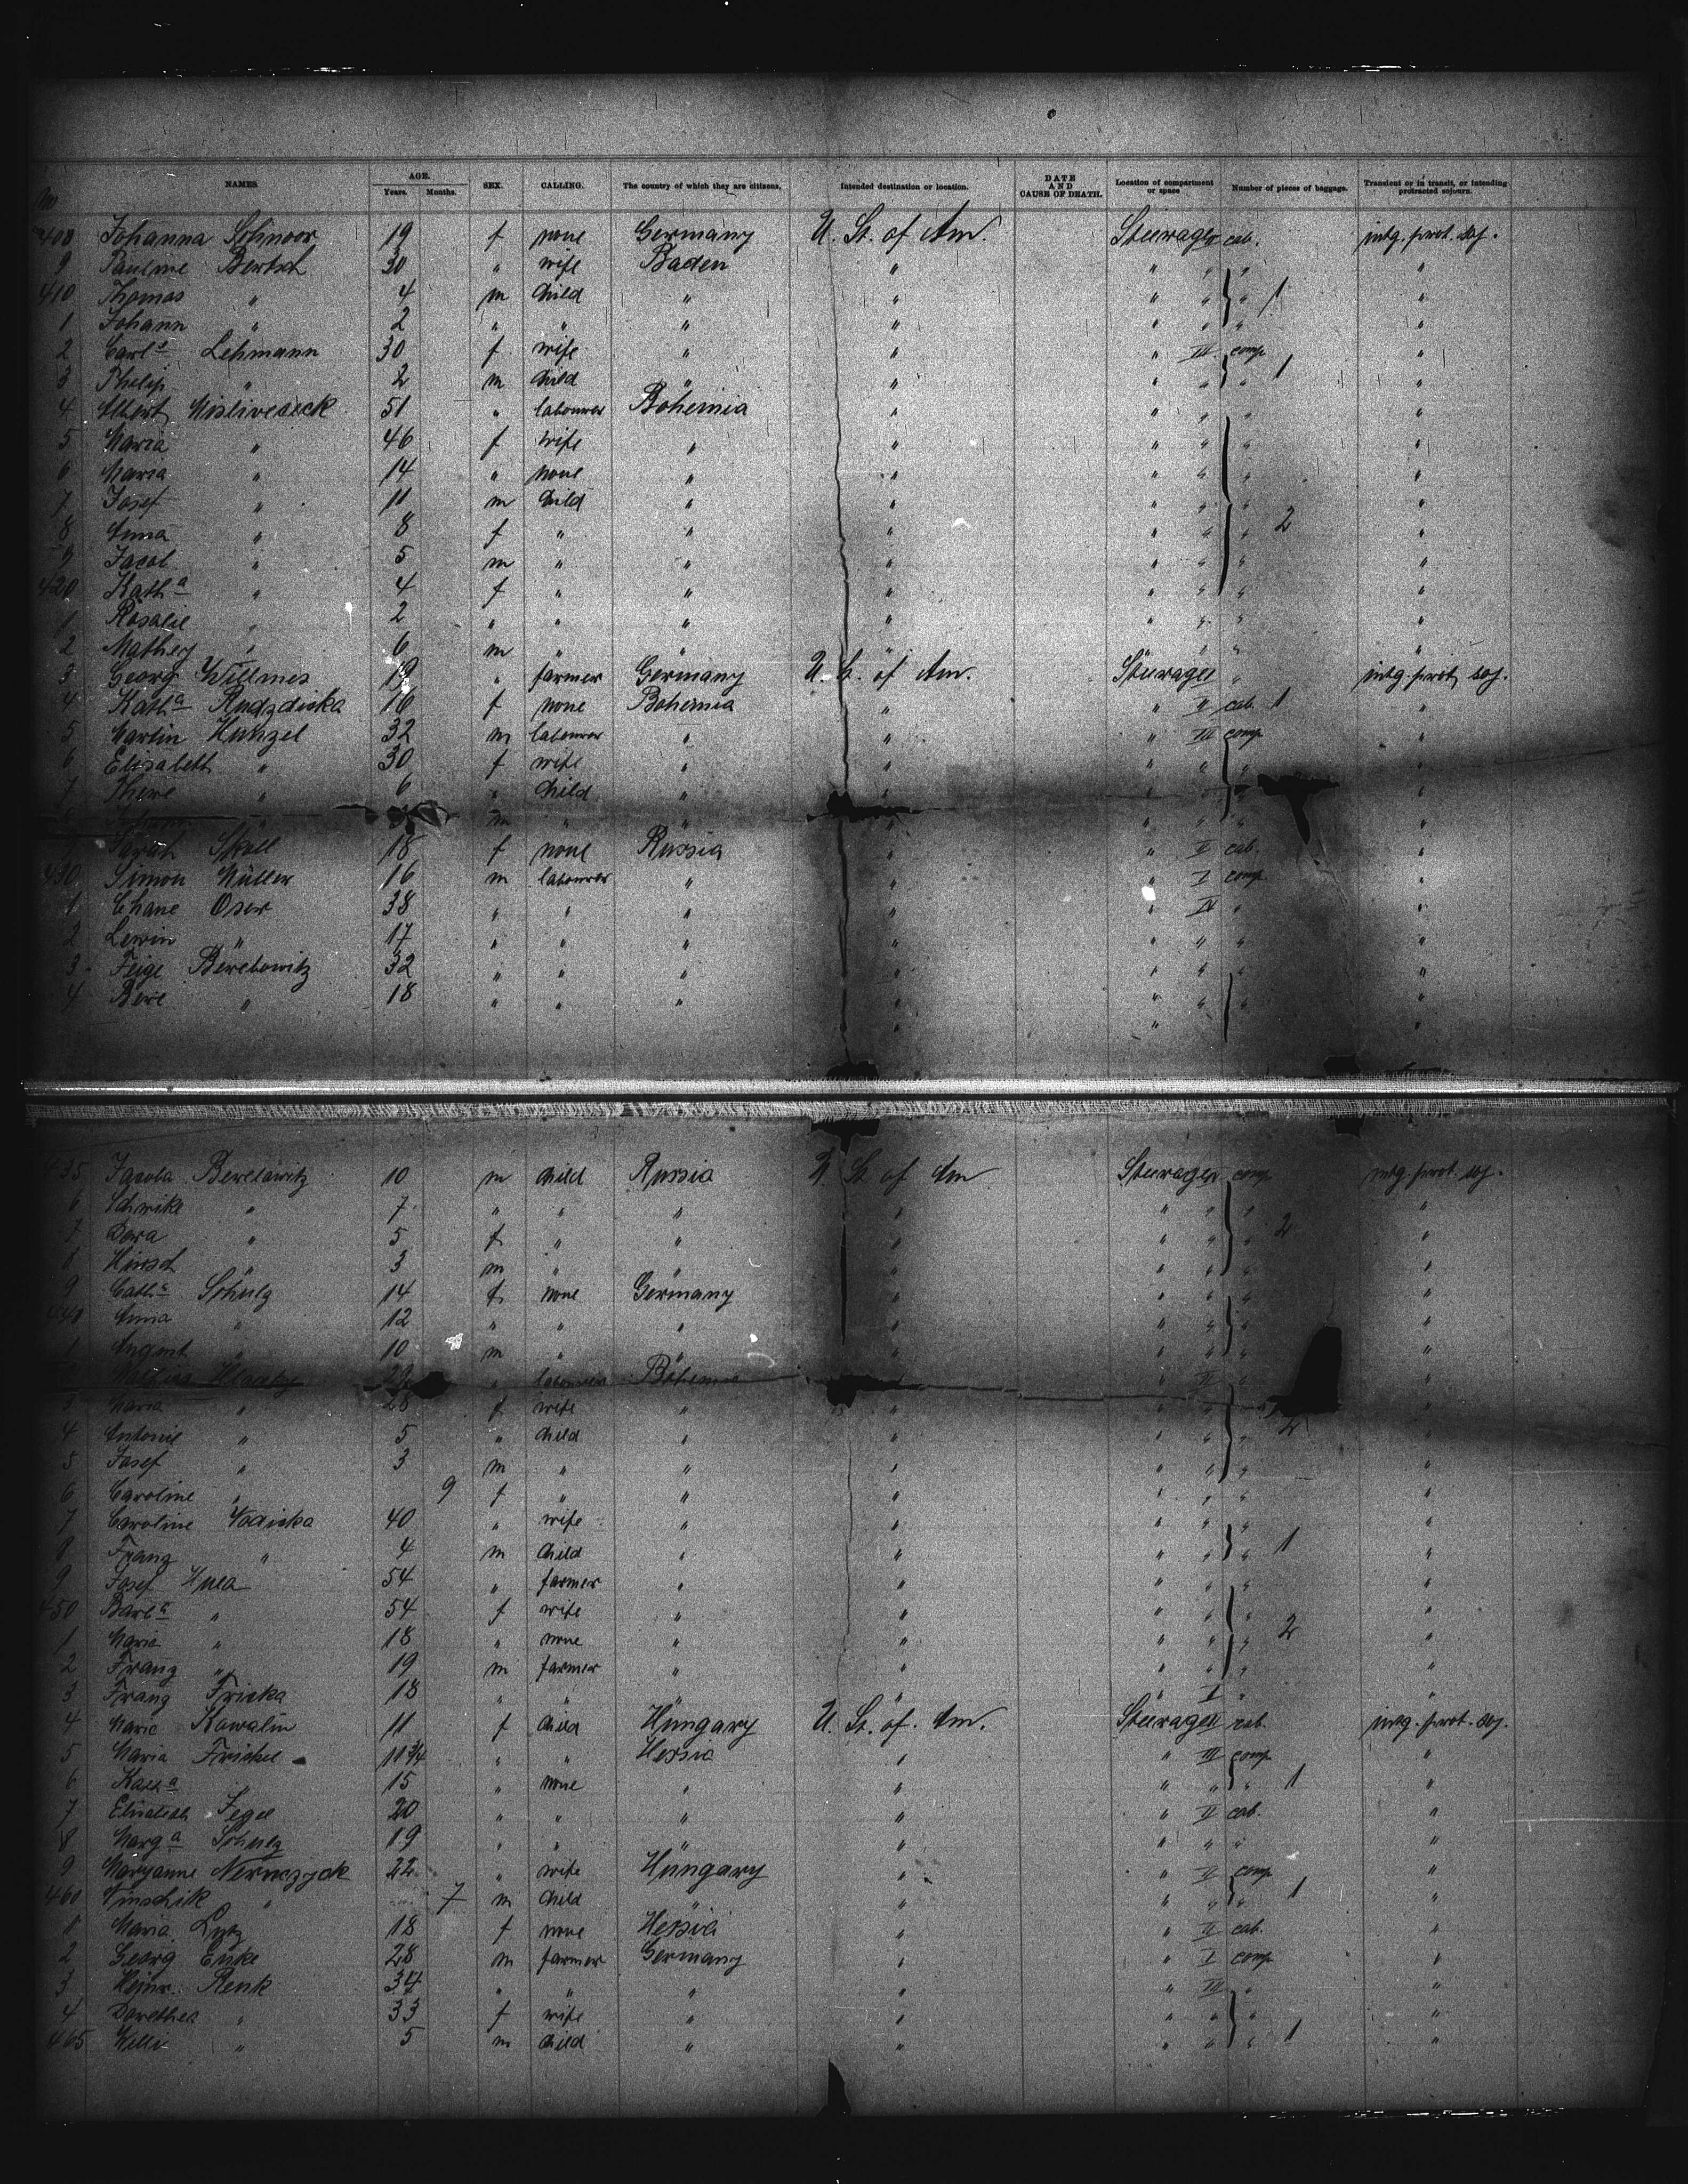 NAMES. AGE. Years. Months. SEX. CALLING. The country of which they are citizens. Intended destination or location. DATE AND CAUSE OF DEATH. Location of compartment or space Number of pieces of baggage. Transient or in transit, or intending protracted sojourn.
408 Johanna Schnoor 19 f none Germany U. St. of Am. Steerage II cab. intg. prot. soj.
9 Pauline Bertsch 30 " wife Baden " " " " "
410 Thomas " 4 m child " " " " " 1 "
1 Johann " 2 " " " " " " " "
2 Carl Lehmann 30 f wife " " " III comp "
3 Philip " 2 m child " " " " " 1 "
4 Albert Misliveczeck 51 " labourer Bohemia " " " " "
5 Maria " 46 f wife " " " " " "
6 Maria " 14 " none " " " " " "
7 Josef " 11 m child " " " " " "
8 Anna " 8 f " " " " " " 2 "
9 Jacob " 5 m " " " " " " "
420 Kath a " 4 f " " " " " " "
1 Rosalie " 2 " " " " " " " "
2 Mathey " 6 m " " " " " " "
3 Georg Willmes 19 " farmer Germany U. St. of Am. Steerage " intg. prot. soj.
4 Kath a Rudzdiska 16 f none Bohemia " " II cab. 1 "
5 Martin Hunzel 32 m labourer " " " III comp "
6 Elisabeth " 30 f wife " " " " " "
7 There " 6 " child " " " " " "
" m " " " " " " "
Sarah Skall 18 f none Russia " " II cab. "
430 Simon Müller 16 m labourer " " " I comp "
1 Chane Oser 38 " " " " " IV " "
2 Lewin " 17 " " " " " " " "
3 Feige Berelowitz 32 " " " " " " " "
4 Bere " 18 " " " " " " " "
435 Jacob Berelowitz 10 m child Russia U. St. of Am Steerage IV comp intg. prot. soj.
6 Schmike " 7 " " " " " " " "
7 Dora " 5 f " " " " " " 2 "
8 Hirsch " 3 m " " " " " " "
9 Cath a Schulz 14 f none Germany " " " " "
440 Anna " 12 " " " " " " " "
1 August " 10 m " " " " " " "
labourer Bohemia " "
3 Maria " 28 f wife " " " " " "
4 Antonie " 5 " child " " " " " 2 "
5 Josef " 3 m " " " " " " "
6 Caroline " 9 f " " " " " " "
7 Caroline Vodicka 40 " wife " " " " " "
8 Franz " 4 m child " " " " " 1 "
9 Josef 54 " farmer " " " " " "
450 Barb a " 54 f wife " " " " " "
1 Maria " 18 " none " " " " " 2 "
2 Franz " 19 m farmer " " " " " "
3 Franz Fricka 18 " " " " " I " "
4 Marie Kowalin 11 f child Hungary U. St. of Am. Steerage II cab. intg. prot. soj.
5 Maria Frickel 11 3/4 " " Hessia " " III comp "
6 Kath a " 15 " none " " " " " 1 "
7 Elisabeth Fegel 20 " " " " " II cab. "
8 Marg a Schulz 19 " " " " " " " "
9 Maryanne Nernczyck 22 " wife Hungary " " II comp "
460 " 7 m child " " " " " 1 "
1 Maria Lutz 18 f none Hessia " " II cab. "
2 Georg Enke 28 m farmer Germany " " I comp "
3 Heinr. Renk 34 " " " " " III " "
4 Dorethea " 33 f wife " " " " " "
465 Willi " 5 m child " " " " " 1 "